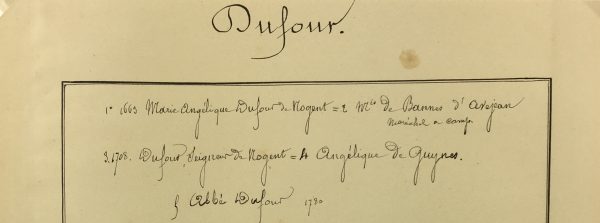 Dufour.
1° 1663. Marie Angélique Dufour de Nogent = 2 Mis de Bannes d'Avejean
Maréchal de camp
3. 1708. Dufour, Seigneur de Nogent = 4 Angélique de Guynes.
Abbé Dufour 1780